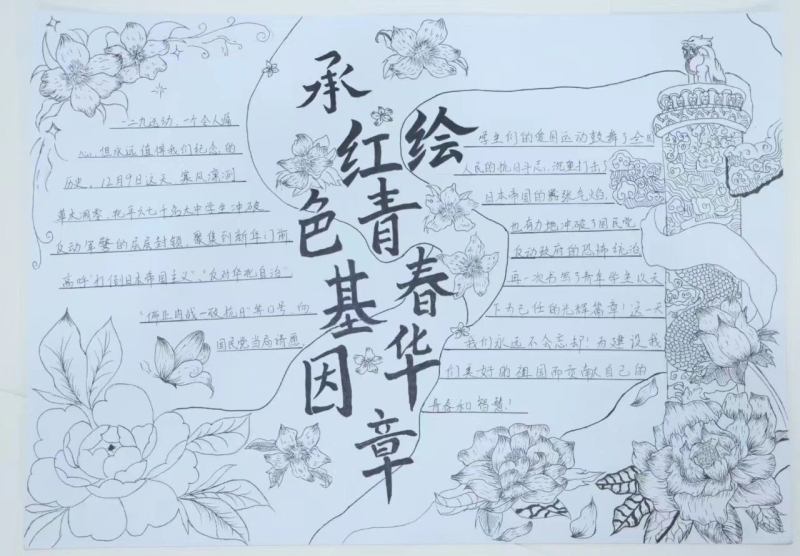 承红色基因
绘青春华章
一二九运动,一个令人痛
心,但永远值得我们纪念的
历史。12月9日这天,寒风凛冽
华大凋零,北平六七千名大中学生冲破
反动军警的层层封锁,聚集到新华门前
高呼"打倒日本帝国主义"、"反对华北自治"
"停止内战一致抗日"等口号,向
国民党当局请愿。
学生们的爱国运动鼓舞了全国
人民的抗日斗志,沉重打击了
日本帝国的嚣张气焰
也有力地冲破了国民党
反动政府的恐怖统治
再一次书写了青年学生以天
下为己任的光辉篇章!这一天
我们永远不会忘却!为建设我
们美好的祖国而贡献自己的
青春和智慧!